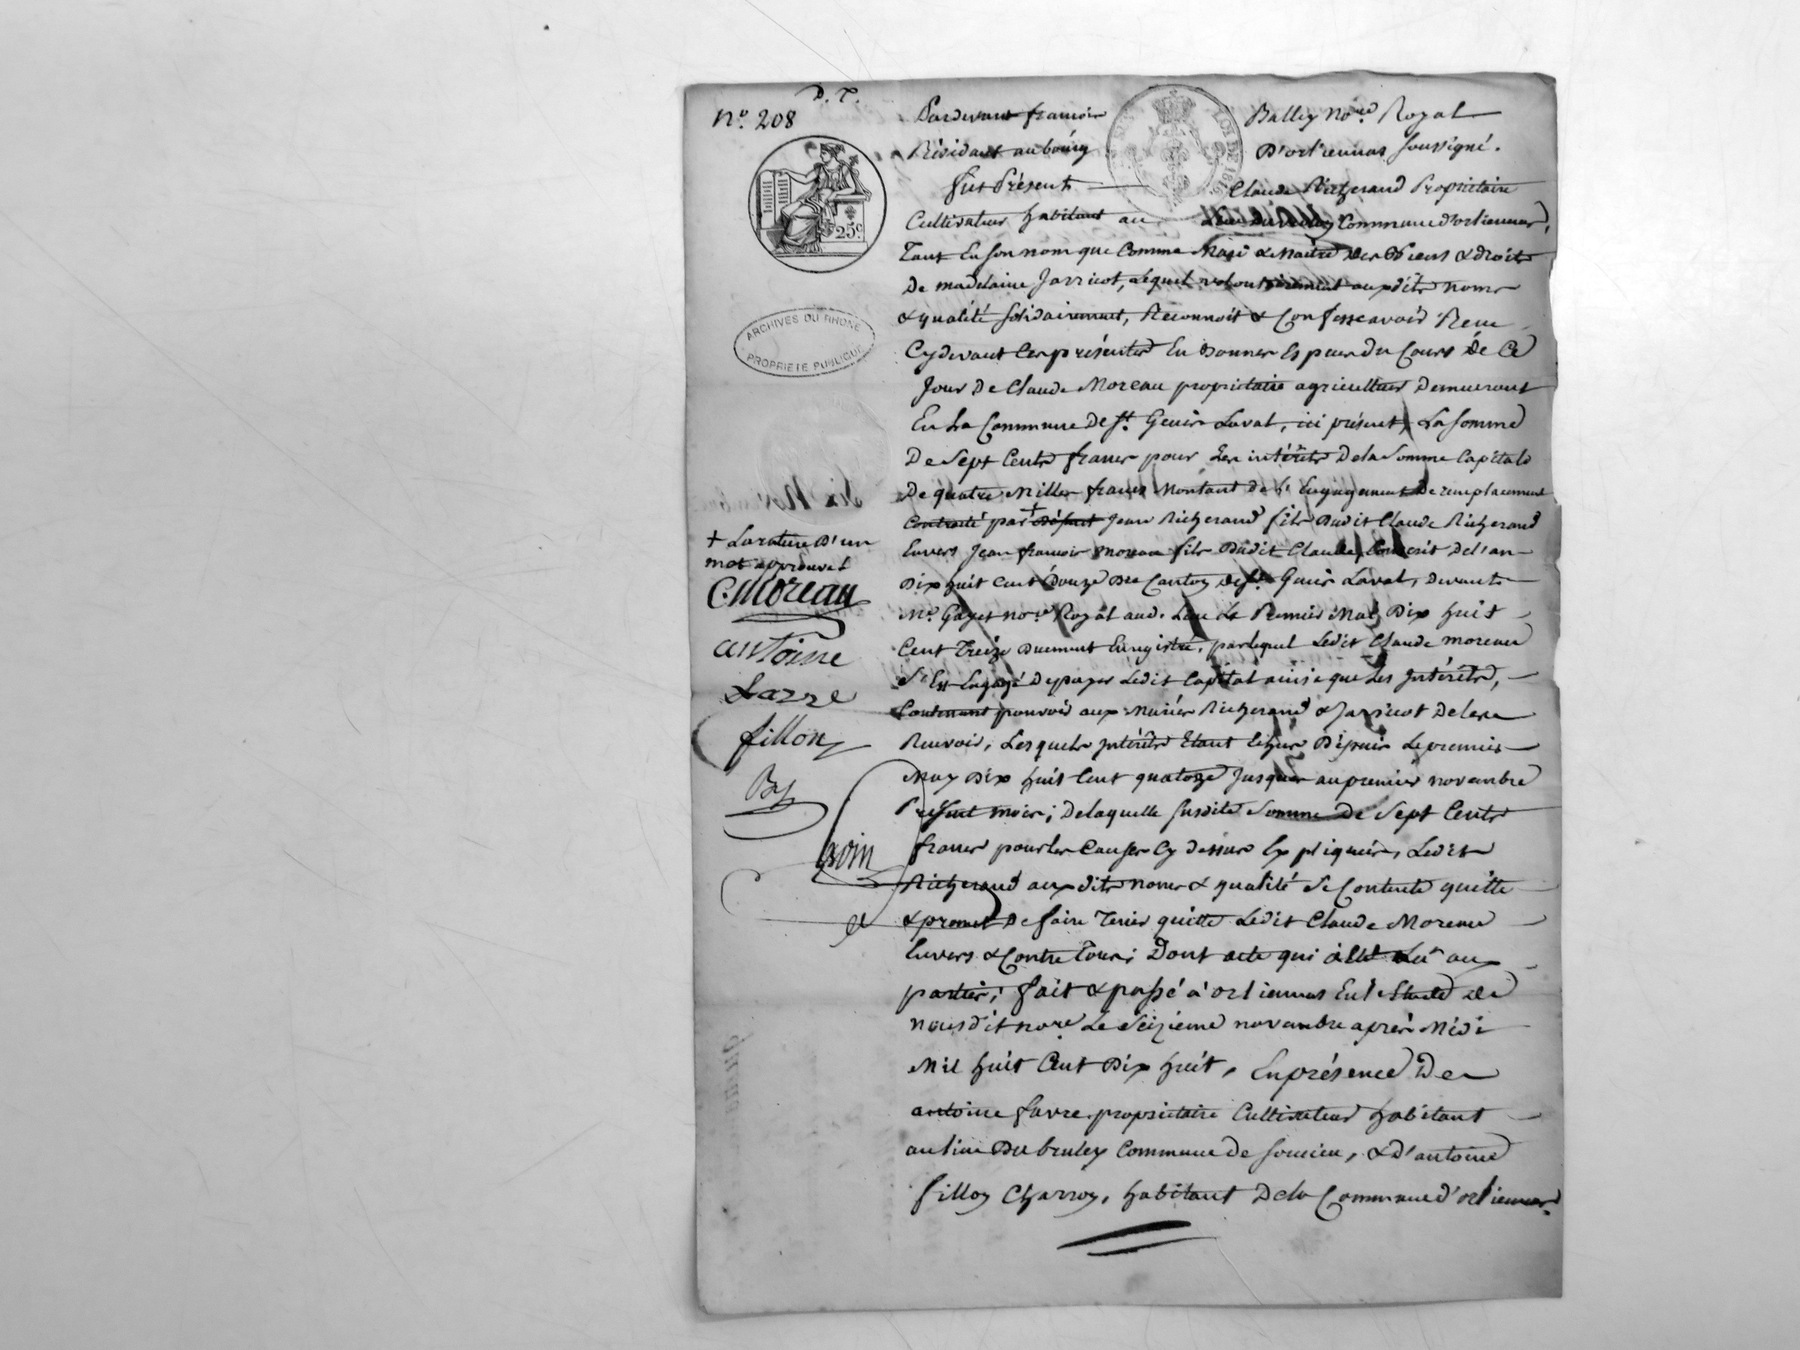 D. T.
N.º 208
25 c.
ARCHIVES DU RHONE
PROPRIETE PUBLIQUE
Pardevant françois Balley No.re Royal
Résidant au bourg D'orlienas soussigné.
fut Présent Claude Richerand Propriétaire
Cultivateur habitant au Commune d'orlienas,
Tant En son nom que Comme Mari & Maitre des Biens & droits
De madelaine Jarricot, Lequel volontairement aux dits noms
& qualité solidairement, Reconnoit & Confesse avoir Reçu
Cydevant Ces présentes En bonnes Espèces du Cours de Ce
Jour De Claude Moreau propriétaire agriculteur Demeurant
En La Commune De St. Genis Laval, ici présent, La somme
De Sept Cents francs pour Les intérêts De la Somme Capitale
De quatre Mille francs Montant de l'Engagement De remplacement
Contracté par + Jean Richerand fils Dudit Claude Richerand
Envers Jean françois Moreau fils Dudit Claude, Conscrit De l'an
Dix huit cent Douze Du Canton de St. Genis Laval, Devant
Me. Gayet no.re Royal aud. Lieu Le Premier Mai Dix huit
Cent Treize Duement Enregistré, par lequel Ledit Claude moreau
S'Est Engagé De payer Ledit Capital ainsi que Les Intérêts,
Contenant pouvoir aux Mariés Richerand & Jarricot De les
Recevoir, Lesquels Intérêts Etant Echus Depuis Le premier
May Dix huit Cent quatorze Jusques au premier novembre
Présent mois; De laquelle susdite Somme De Sept Cents
francs pour les Causes Cy dessus Expliquées, Ledit
Richerand aux dits noms & qualité Se Contente quitte
& promet De faire Tenir quitte Ledit Claude Moreau
Envers & Contre Tous; Dont acte qui a été Lû aux
parties; fait & passé à orlienas En l'Etude de
nousdit no.re Le Seizieme novembre après Midi
Mil huit Cent Dix huit, En présence De
antoine favre propriétaire Cultivateur habitant
au lieu Du bruley Commune de soucieu, & D'antoine
fillon Charron, habitant De la Commune d'orlienas.
+ La rature D'un
mot approuvée
C. Moreau
antoine
favre
fillon